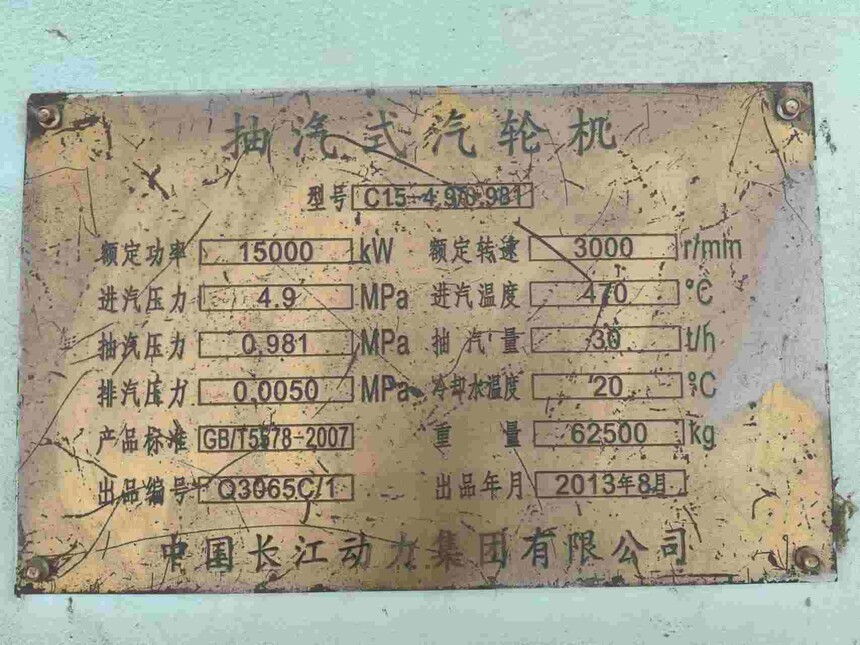 抽汽式汽轮机
型号 C15-4.9/0.981
额定功率 15000 kW 额定转速 3000 r/mm
进汽压力 4.9 MPa 进汽温度 470 °C
抽汽压力 0.981 MPa 抽汽量 30 t/h
排汽压力 0.0050 MPa 冷却水温度 20 °C
产品标准 GB/T5578-2007 重量 62500 kg
出品编号 Q3065C/1 出品年月 2013年8月
中国长江动力集团有限公司